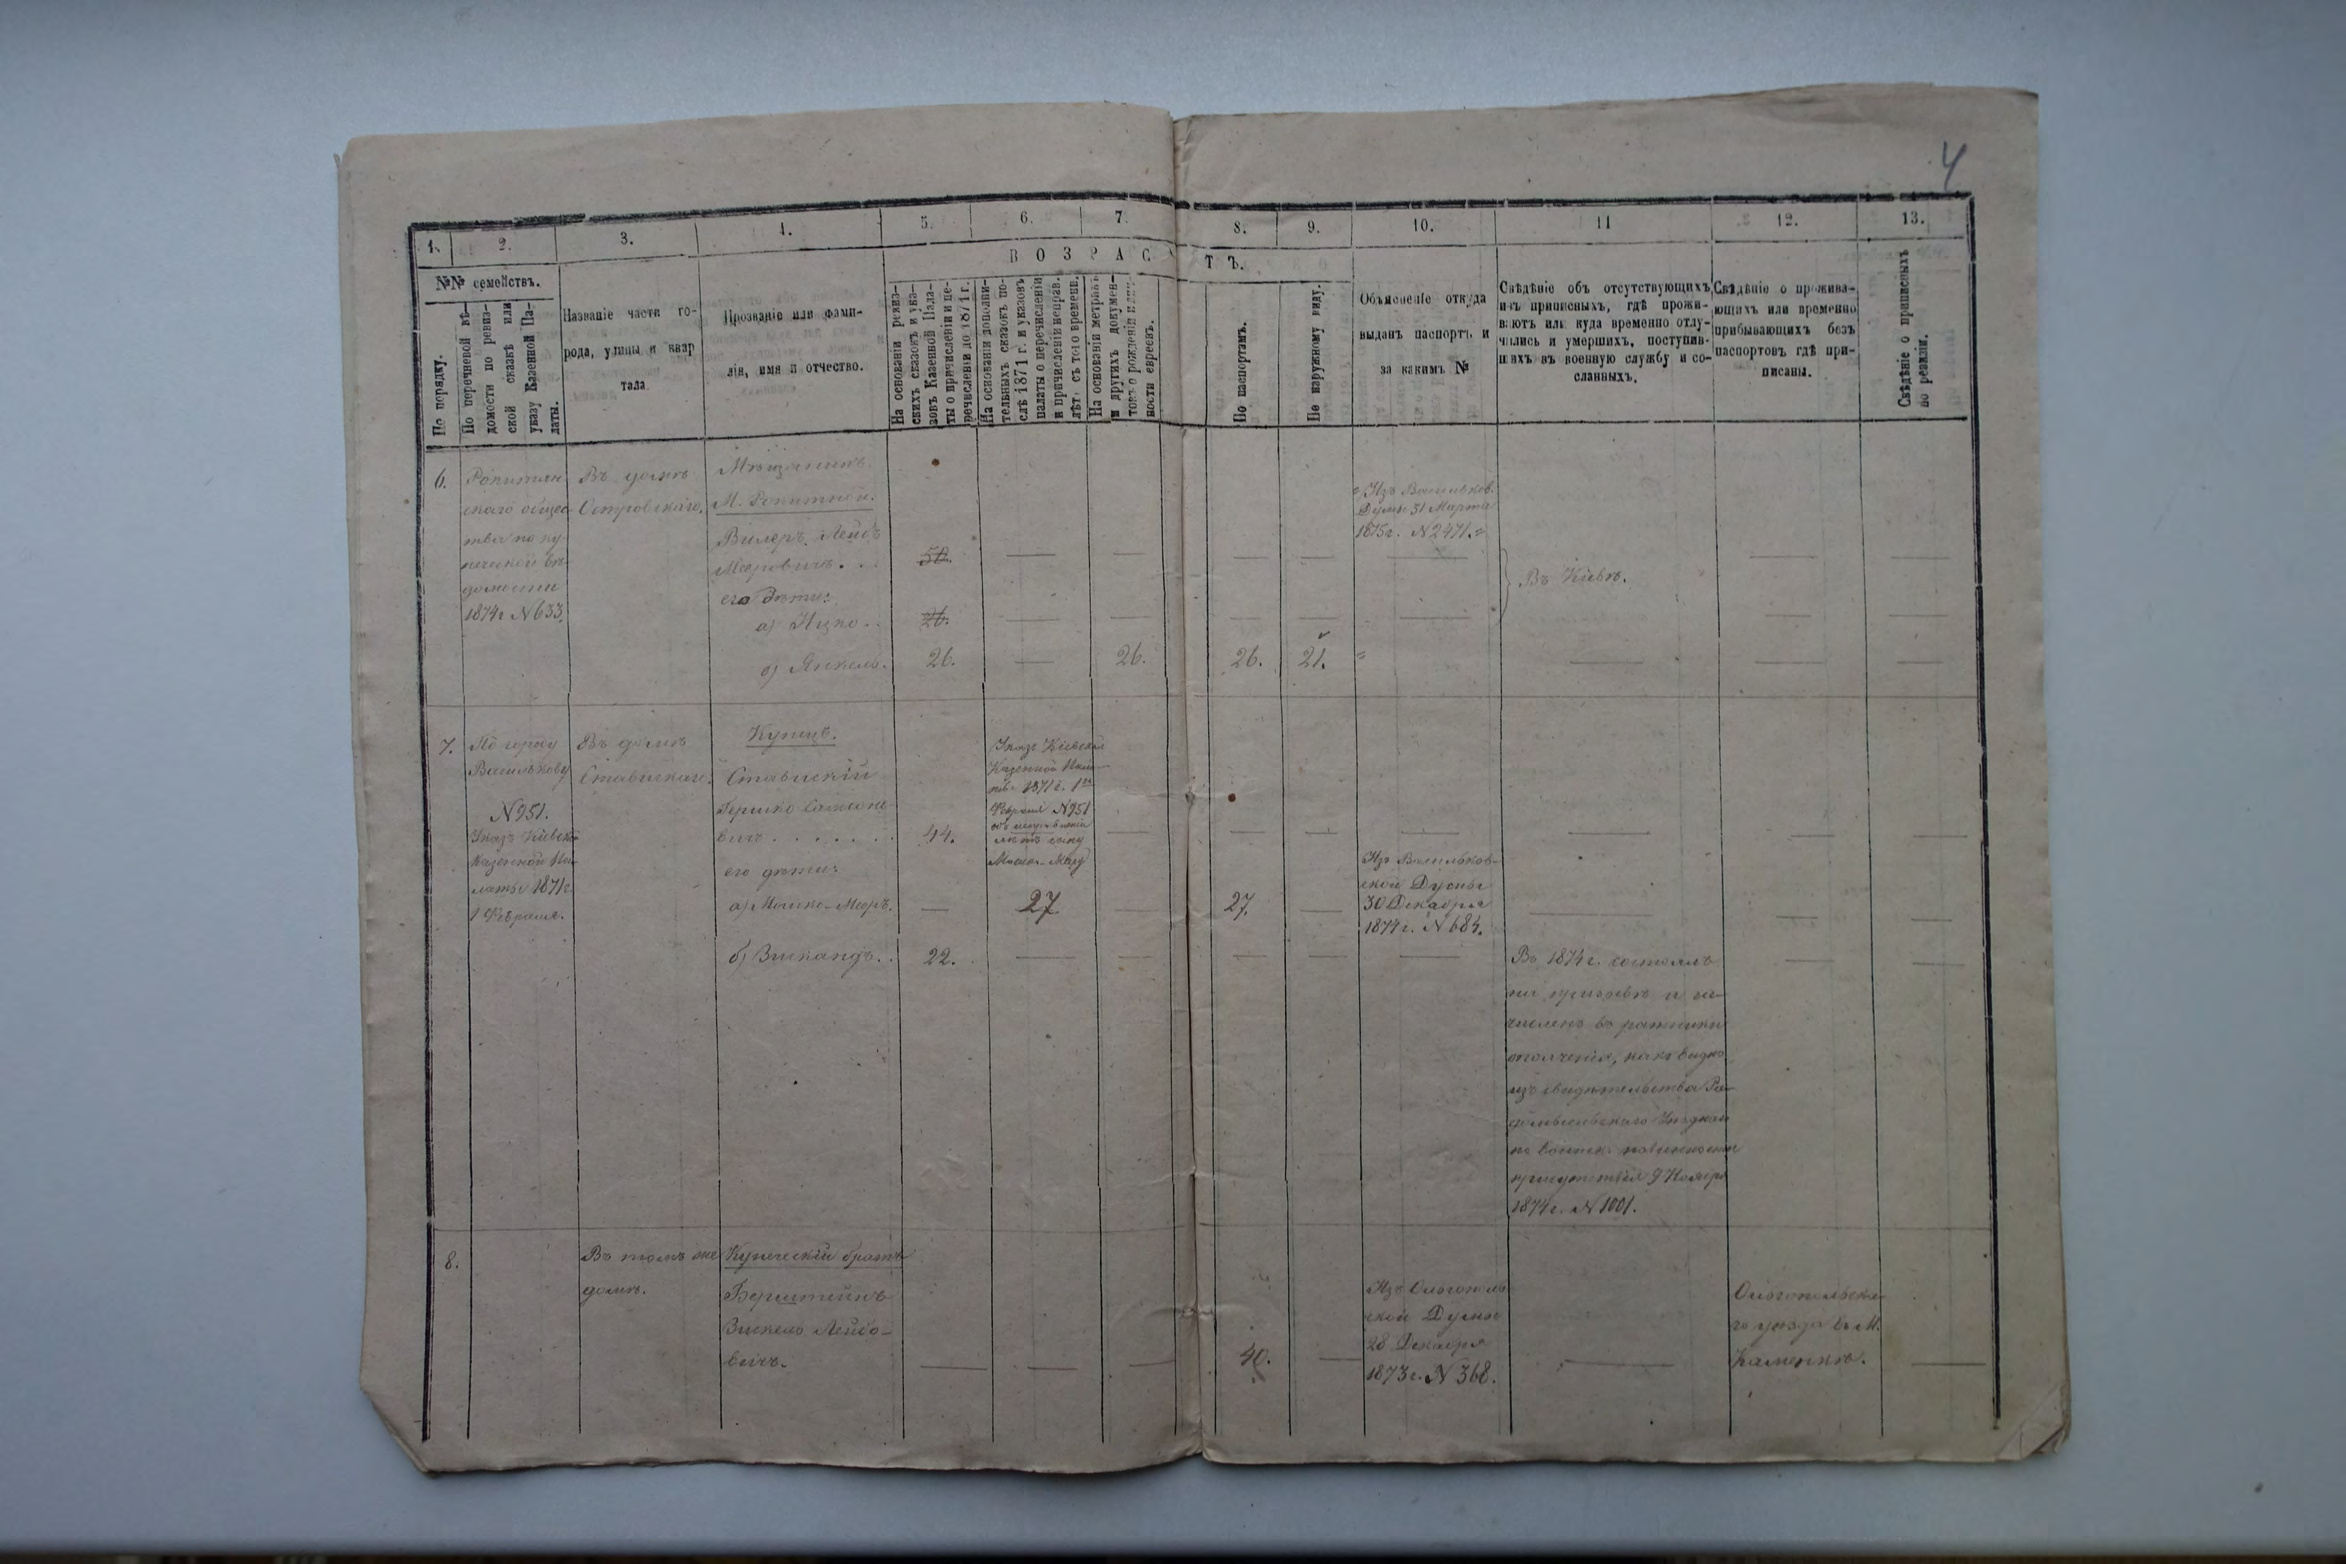 4
1.
2.
3.
4.
5.
6.
7.
8.
9.
10.
11
12.
13.
В О З Р А С Т Ъ.
№№ семействъ.
По порядку.
По перечневой вѣ-
домости по ревиз-
ской сказкѣ или
указу Казенной Па-
латы.
Названіе части го-
рода, улицы и квар
тала
Прозваніе или фами-
лія, имя и отчество.
На основаніи ревиз-
скихъ сказокъ и ука-
зовъ Казенной Пала-
ты о причисленіи и пе-
речисленіи до 1871 г.
На основаніи дополни-
тельныхъ сказокъ по-
слѣ 1871 г. и указовъ
палаты о перечисленіи
и причисленіи неправ.
лѣт. съ того времени.
На основаніи метрикъ
и другихъ докумен-
товъ о рожденіи
ности евреевъ.
По паспортамъ.
По наружному виду.
Объясненіе откуда
выданъ паспортъ и
за какимъ №
Свѣдѣніе объ отсутствующихъ
изъ приписныхъ, гдѣ прожи-
ваютъ или куда временно отлу-
чились и умершихъ, поступив-
шихъ въ военную службу и со-
сланныхъ.
Свѣдѣніе о прожива-
ющихъ или временно
прибывающихъ безъ
паспортовъ гдѣ при-
писаны.
Свѣдѣніе о приписныхъ
по ревизіи.
6.
Рокитян
скаго общес
тва по ку
печеской вѣ
домости
1874 г N 633.
Въ домѣ
Островскаго.
Мѣщанинъ
М. Рокитной.
Вилеръ Лейбъ
Мееровичъ. . .
его дѣти:
а) Ицко ..
б) Янкель.
50.
26.
26.
26.
26.
21.
Изъ Васильков.
Думы 31 Марта
1875 г. N 2471.
Въ Кіевѣ.
7.
По городу
Василькову
N 951.
Указ Кіевско
Казенной Па-
латы 1871 г.
1 Февраля.
Въ домѣ
Ставискаго.
Купецъ.
Ставискій
Гершко
вичъ . . . . . .
его дѣти:
а) Мошко-Мееръ.
б) Зискандъ. .
44.
22.
Указъ Кіевской
Казенной Пала-
ты 1871 г. 1го
Февраля N 951
объ исправленіи
лѣтъ сыну
27
27.
Изъ Васильков-
ской Думы
30 Декабря
1874 г. N 684.
Въ 1874 г. состоялъ
на призывѣ и за-
численъ въ ратники
ополченія, какъ видно
изъ свидѣтельства Ра-
домысльскаго Уѣзднаго
по воинск. повинности
присутствія 9 Ноября
1874 г. N 1001.
8.
Въ томъ же
домѣ.
Купеческій братъ
Бернштейнъ
Зискель Лейбо-
вичъ.
40.
Изъ Ольгополь
ской Думы
28 Декабря
1873 г. N 368.
Ольгопольска-
го уѣзда въ М.
Каменкѣ.